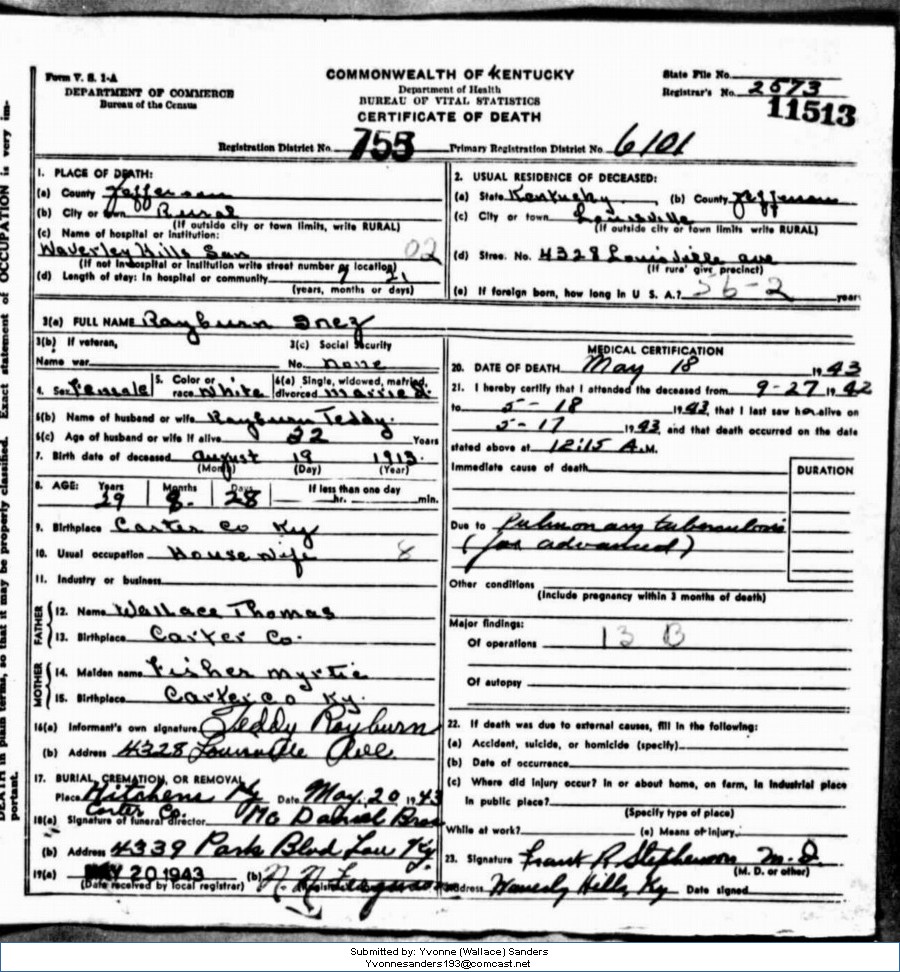 Form V. S. 1-A
DEPARTMENT OF COMMERCE
Bureau of the Census
COMMONWEALTH OF KENTUCKY
Department of Health
BUREAU OF VITAL STATISTICS
CERTIFICATE OF DEATH
State File No.
Registrar's No. 2573
11513
Registration District No. 755 Primary Registration District No. 6101
1. PLACE OF DEATH:
(a) County Jefferson
(b) City or town Rural
(If outside city or town limits, write RURAL)
(c) Name of hospital or institution:
Waverley Hills San 02
(If not in hospital or institution write street number or location)
(d) Length of stay: In hospital or community 7 21
(years, months or days)
2. USUAL RESIDENCE OF DECEASED:
(a) State Kentucky, (b) County Jefferson
(c) City or town Louisville
(If outside city or town limits write RURAL)
(d) Stree. No. 4328 Louisville ave
(If rura' give precinct)
(e) If foreign born, how long in U S. A.? 56-2 years
3(a) FULL NAME Rayburn Inez
3(b) If veteran, 3(c) Social Security
Name war No. none
4. Sex Female 5. Color or race White 6(a) Single, widowed, married, divorced married
6(b) Name of husband or wife Rayburn Teddy
6(c) Age of husband or wife if alive 32 Years
7. Birth date of deceased August 19 1913
(Month) (Day) (Year)
8. AGE: Years Months Days If less than one day
29 8 28 hr. min.
9. Birthplace Carter Co Ky
10. Usual occupation House wife 8
11. Industry or business
FATHER
12. Name Wallace Thomas
13. Birthplace Carter Co.
MOTHER
14. Maiden name Fisher Myrtie
15. Birthplace Carter co Ky.
16(a) Informant's own signature Teddy Rayburn
(b) Address 4328 Louisville Ave
17. BURIAL, CREMATION, OR REMOVAL
Place Hitchens Ky Date May. 20 1943
Carter Co.
18(a) Signature of funeral director Mc Daniel Bros
(b) Address 4339 Park Blvd Lou Ky
19(a) MAY 20 1943 (b) N. N. Ferguson
(Date received by local registrar)
MEDICAL CERTIFICATION
20. DATE OF DEATH May 18 1943
21. I hereby certify that I attended the deceased from 9-27 1942
to 5-18 1943, that I last saw her alive on
5-17 1943, and that death occurred on the date
stated above at 12:15 A.M.
Immediate cause of death DURATION
Due to Pulmonary tuberculosis
(far advanced)
Other conditions
(Include pregnancy within 3 months of death)
Major findings:
Of operations 13 B
Of autopsy
22. If death was due to external causes, fill in the following:
(a) Accident, suicide, or homicide (specify)
(b) Date of occurrence
(c) Where did injury occur? In or about home, on farm, in industrial place
in public place?
(Specify type of place)
While at work? (e) Means of injury.
23. Signature Frank R. Stephenson M.D.
(M. D. or other)
Address Waverly Hills, Ky Date signed
Exact statement of OCCUPATION is very im-
DEATH in plain terms, so that it may be properly classified.
portant.
Submitted by: Yvonne (Wallace) Sanders
Yvonnesanders193@comcast.net